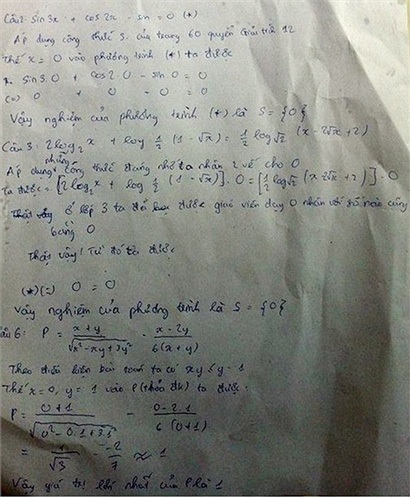 Câu 2: sin 3x + cos 2x - sin = 0 (*)
Áp dụng công thức 3. của trang 60 quyển Giải tích 12
Thế x = 0 vào phương trình (*) ta được
sin 3.0 + cos 2.0 - sin 0 = 0
(=) 0 + 0 - 0 = 0
Vậy nghiệm của phương trình (*) là S = {0}
Câu 3: 2log₂ x + log ½ (1 - √x) = ½ log√2 (x - 2√x + 2)
Áp dụng những công thức đáng nhớ ta nhân 2 vế cho 0
Ta được = [2log₂ x + log ½ (1 - √x)] . 0 = [½ log√2 (x - 2√x + 2)] . 0
ở lớp 3 ta đã học được giáo viên dạy 0 nhân với số nào cũng
bằng 0
Thật vậy! Từ đó ta được
(*) (=) 0 = 0
Vậy nghiệm của phương trình là S = {0}
Câu 6: P = x + y / √(x² - xy + 3y²) - x - 2y / 6(x + y)
Theo điều kiện bài toán ta có xy ≤ y - 1
Thế x = 0, y = 1 vào P (thỏa đk) ta được:
P = 0 + 1 / √(0² - 0.1 + 3.1) - 0 - 2.1 / 6(0 + 1)
= 1 / √3 - -2 / 7 ≈ 1
Vậy giá trị lớn nhất của P là 1